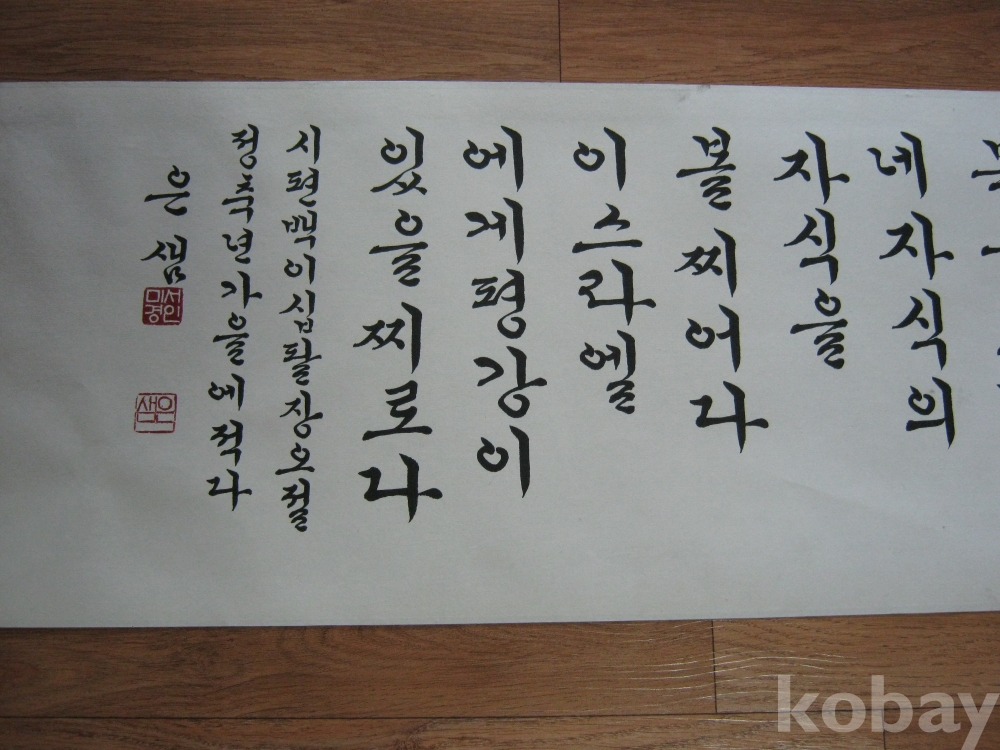 네 자식의
자식을
볼찌어다
이스라엘
에게 평강이
있을찌로다
시편백이십팔장오절
정축년가을에적다
은샘
서미경인
은샘
kobay